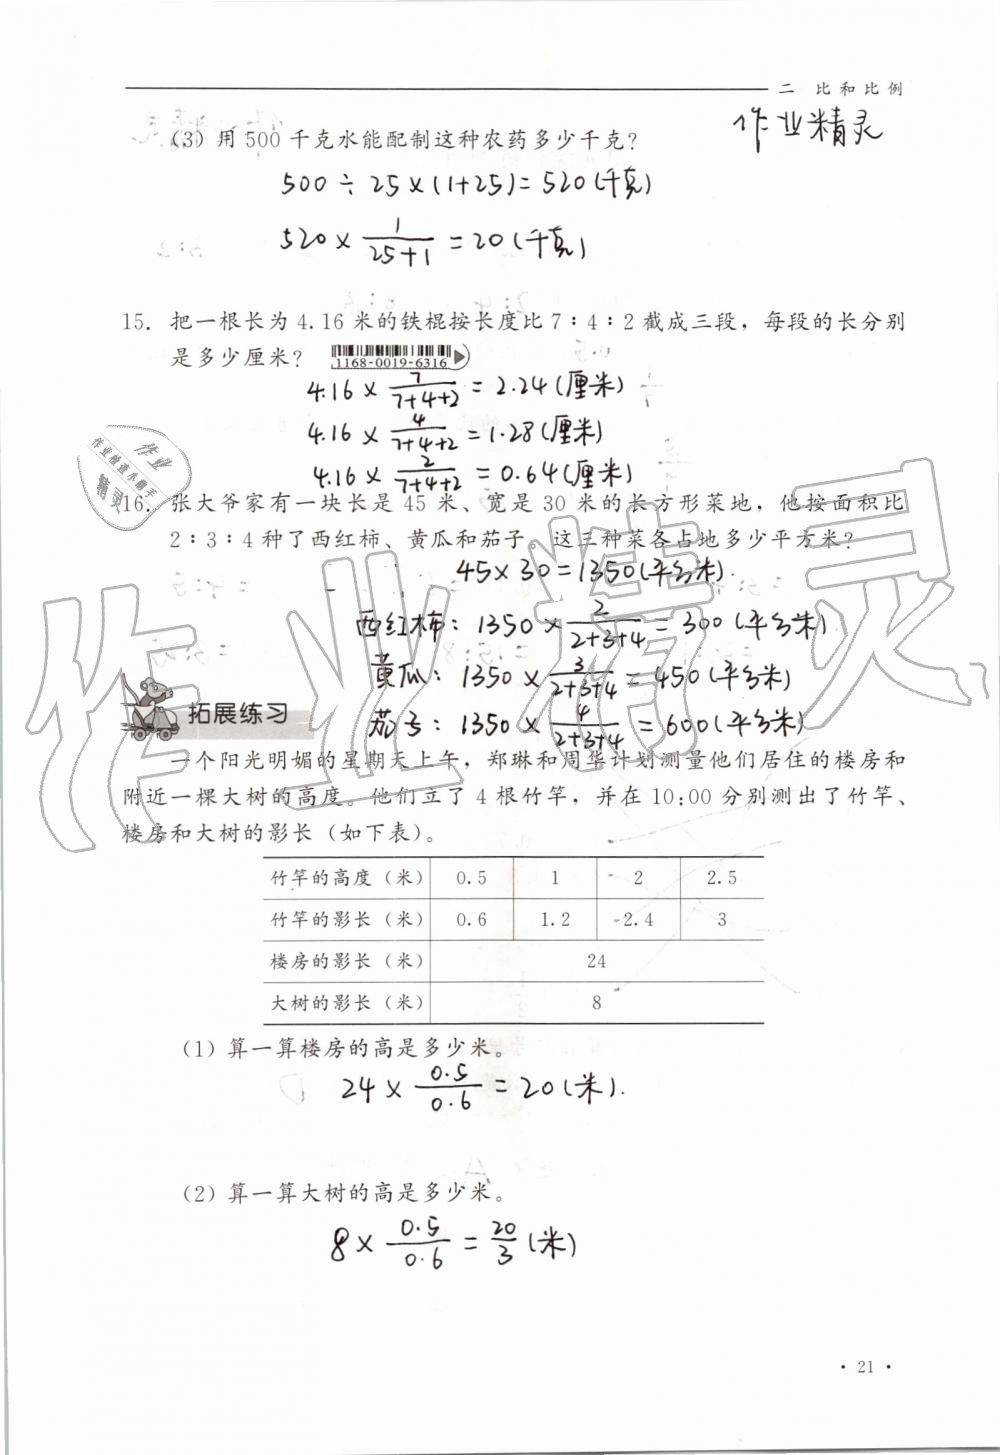 二 比和比例
作业精灵
(3) 用 500 千克水能配制这种农药多少千克?
500÷25×(1+25)=520(千克)
520×1/(25+1)=20(千克)
15. 把一根长为 4.16 米的铁棍按长度比 7∶4∶2 截成三段，每段的长分别
是多少厘米?
1168-0019-6316
4.16×7/(7+4+2)=2.24(厘米)
4.16×4/(7+4+2)=1.28(厘米)
4.16×2/(7+4+2)=0.64(厘米)
作业
作业检查小助手
精灵
16. 张大爷家有一块长是 45 米、宽是 30 米的长方形菜地，他按面积比
2∶3∶4 种了西红柿、黄瓜和茄子 这三种菜各占地多少平方米?
45×30=1350(平方米).
西红柿：1350×2/(2+3+4)=300(平方米)
黄瓜：1350×3/(2+3+4)=450(平方米)
茄子：1350×4/(2+3+4)=600(平方米)
作业精灵
拓展练习
一个阳光明媚的星期天上午，郑琳和周华计划测量他们居住的楼房和
附近一棵大树的高度。他们立了 4 根竹竿，并在 10:00 分别测出了竹竿、
楼房和大树的影长（如下表）。
竹竿的高度（米） 0.5 1 2 2.5
竹竿的影长（米） 0.6 1.2 2.4 3
楼房的影长（米） 24
大树的影长（米） 8
(1) 算一算楼房的高是多少米。
24×0.5/0.6=20(米).
(2) 算一算大树的高是多少米。
8×0.5/0.6=20/3(米)
· 21 ·